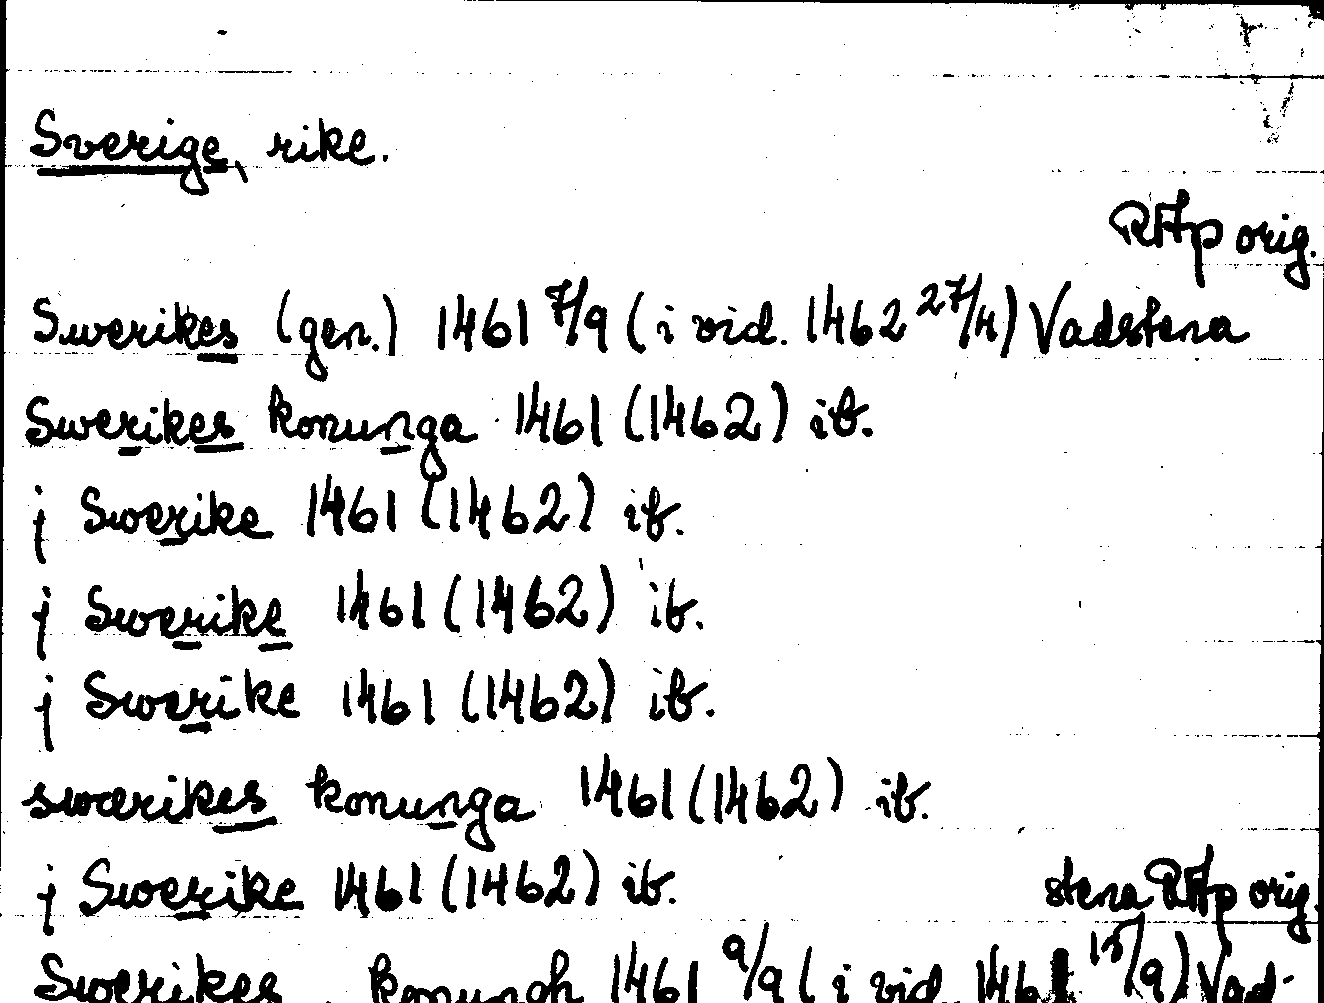 Sverige, rike.
RAp orig.
Swerikes (gen.) 1461 7/9 (i vid. 1462 27/4) Vadstena
Swerikes konunga 1461 (1462) ib.
j Swerike 1461 (1462) ib.
j Swerike 1461 (1462) ib.
j Swerike 1461 (1462) ib.
swerikes konunga 1461 (1462) ib.
j Swerike 1461 (1462) ib.
stena RAp orig.
Swerikes konungh 1461 9/9 (i vid. 1461 15/9) Vad-